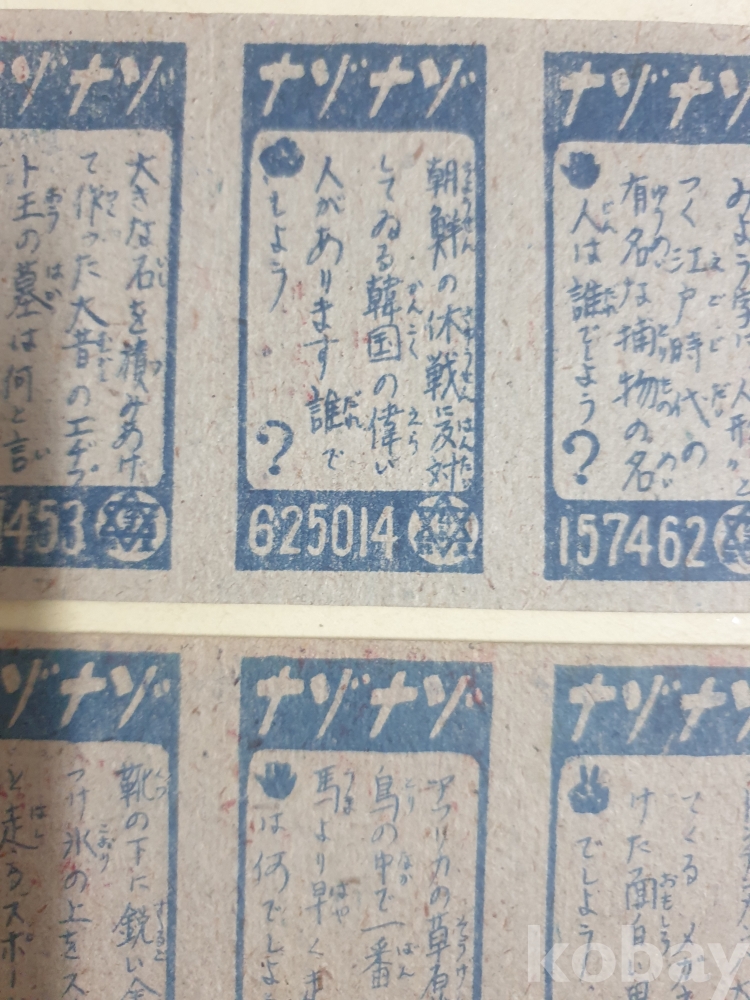 ゾナゾ
大きな石を積みあげ
て作った大昔のエヂプ
ト王の墓は何と言
453
ナゾナゾ
朝鮮の休戦に反対
してゐる韓国の偉い
人があります誰で
しよう?
625014
ナゾナゾ
みよう字に人形
つく江戸時代の
有名な捕物の名
人は誰でしよう?
157462
ゾナゾ
靴の下に鋭い
つけ氷の上をス
と走るスポー
ナゾナゾ
アフリカの草原
鳥の中で一番
馬より早く
は何でしよ
ナゾナゾ
てくる
けた面白い
でしよう
kobay